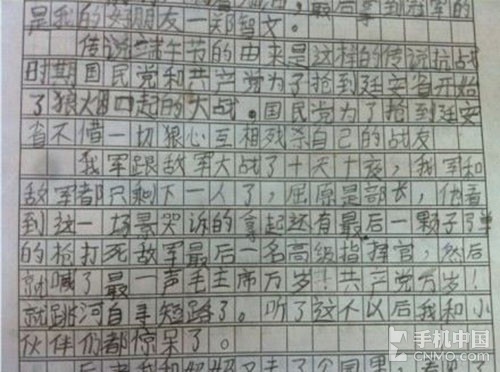 最后拿到冠军的
是我的女朋友一郑智文。
传说端午节的由来是这样的传说抗战
时期国民党和共产党为了抢到延安省开始
了狼烟四起的大战。国民党为了抢到延安
省不惜一切狠心互相残杀自己的战友
我军跟敌军大战了十天十夜，我军和
敌军都只剩下一人了，屈原是部长，他看
到这一场景哭诉的拿起还有最后一颗子弹
的枪打死敌军最后一名高级指挥官，然后
就喊了最一声毛主席万岁！共产党万岁！
就跳河自寻短路了。听了这个以后我和小
伙伴们都惊呆了。
手机中国
CNMO.com